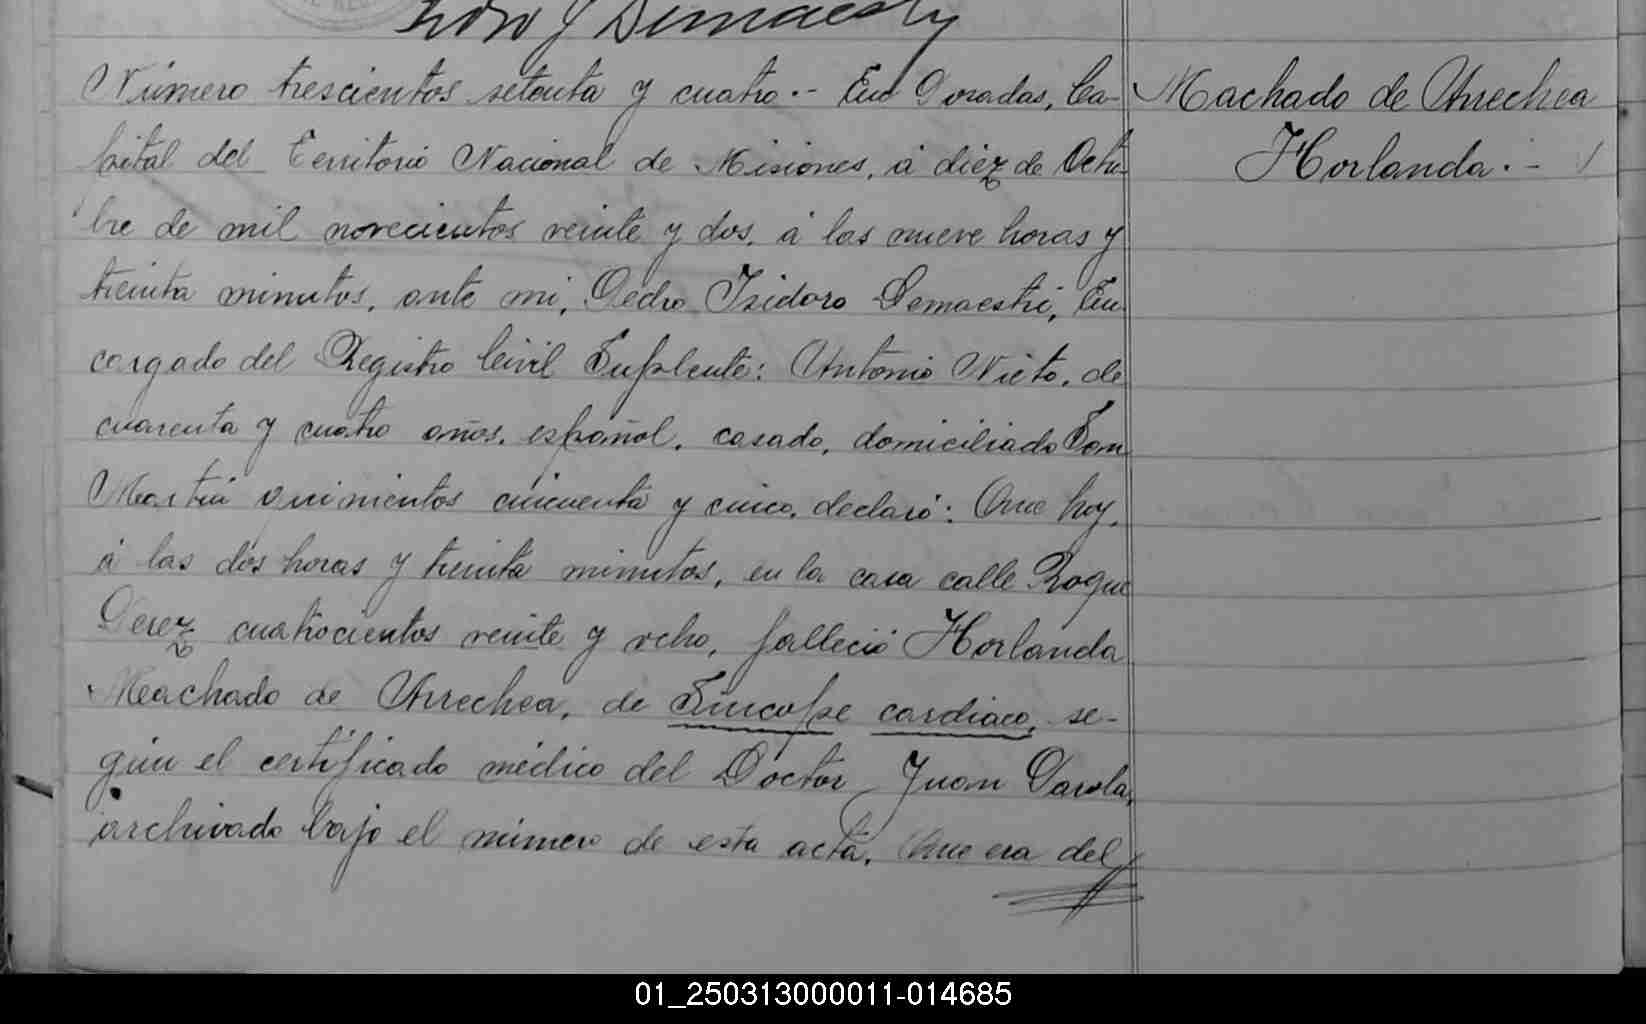 Pedro J Demaestri
Número trescientos setenta y cuatro.- En Posadas, Ca-
pital del Territorio Nacional de Misiones, á diez de Octu-
bre de mil novecientos veinte y dos, á las nueve horas y
treinta minutos, ante mi, Pedro Isidoro Demaestri, En-
cargado del Registro Civil Suplente: Antonio Nieto, de
cuarenta y cuatro años, español, casado, domiciliado San
Martin quinientos cincuenta y cinco, declaró: Que hoy,
á las dos horas y treinta minutos, en la casa calle Roque
Perez cuatrocientos veinte y ocho, falleció Horlanda
Machado de Arrechea, de Sincope cardiaco, se-
gún el certificado médico del Doctor Juan Parola,
archivado bajo el número de esta acta. Que era del
Machado de Arrechea
Horlanda.-
01_250313000011-014685